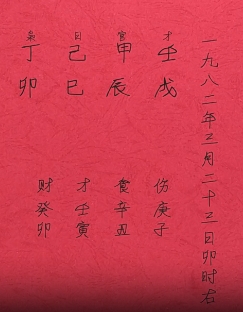 一九八二年三月二十三日卯时右
才壬戌
官甲辰
日己巳
枭丁卯
伤庚子
食辛丑
才壬寅
财癸卯